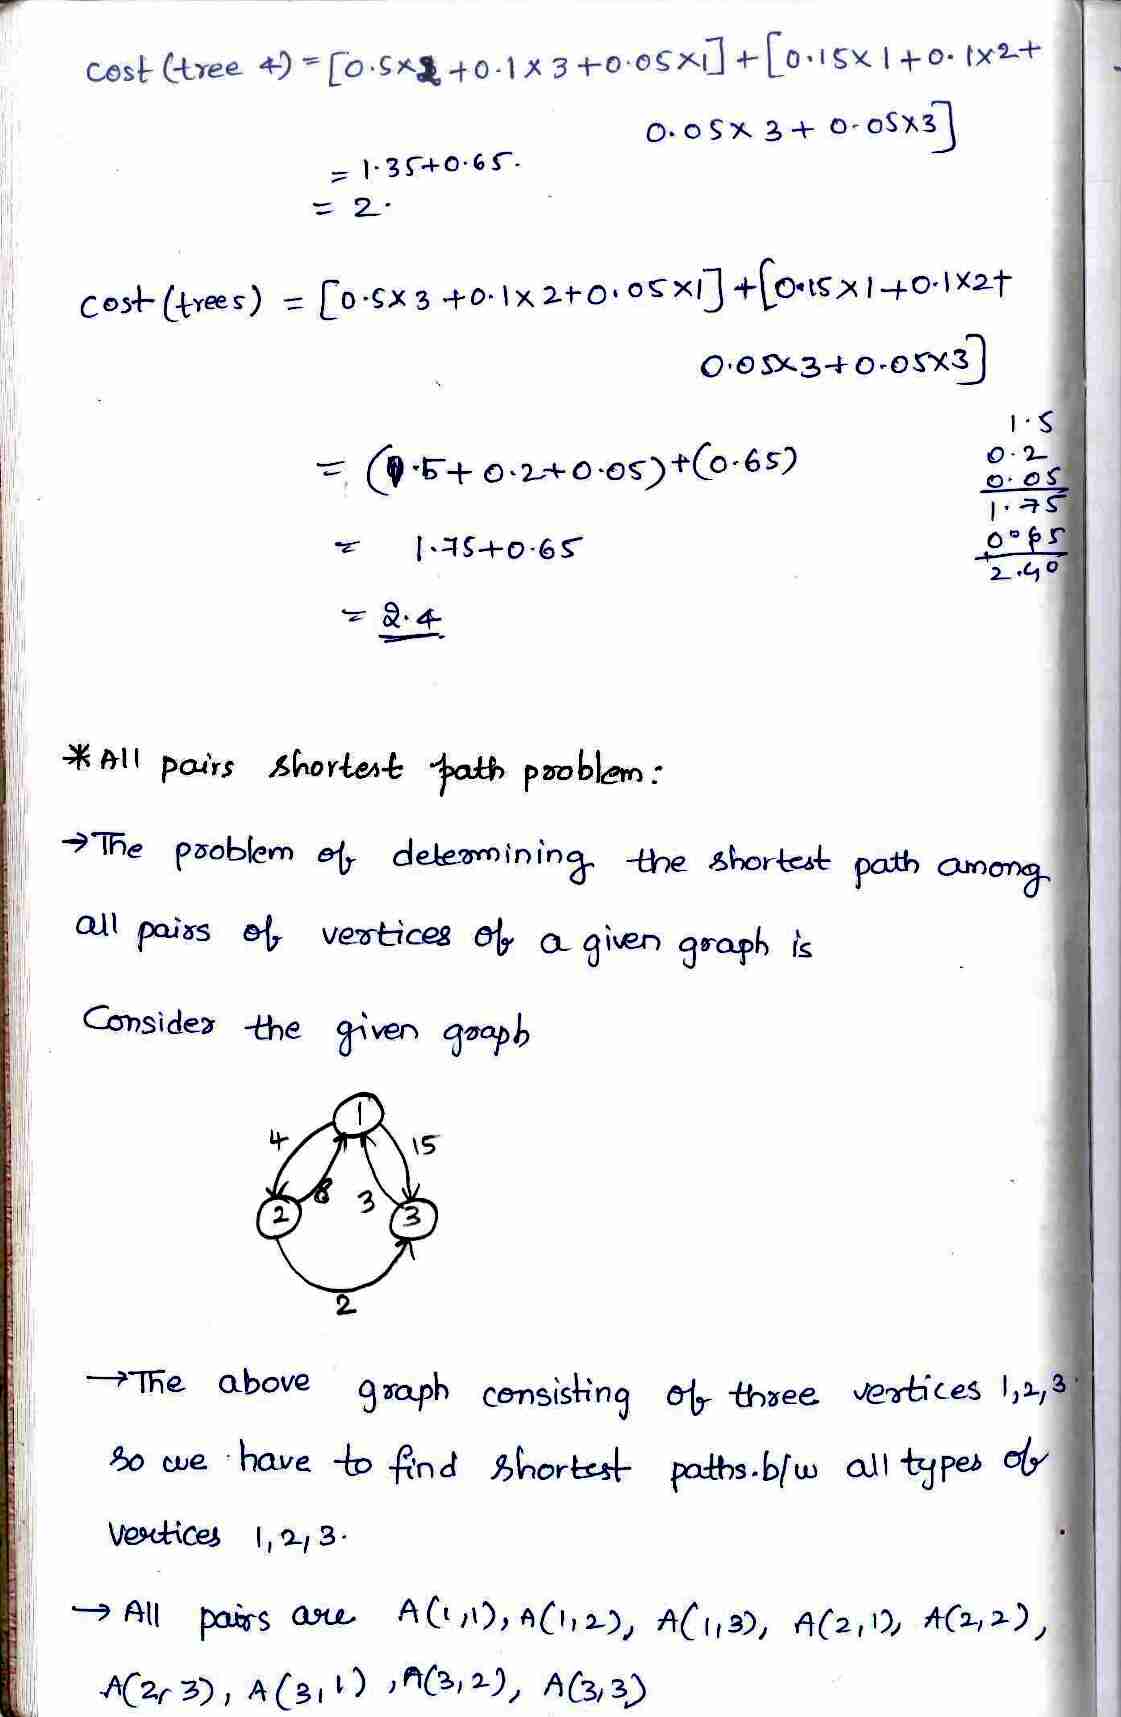 cost (tree 4) = [0.5x2 + 0.1 x 3 + 0.05 x1] + [0.15x 1 + 0.1x2 +
0.05x 3 + 0.05x3]
= 1.35+0.65.
= 2.
cost (tree5) = [0.5x3 + 0.1x2+0.05x1] + [0.15x1+0.1x2+
0.05x3+0.05x3]
= (1.5+ 0.2+0.05)+(0.65)
= 1.75+0.65
= 2.4
1.5
0.2
0.05
1.75
0.65
+
2.40
* All pairs shortest path problem:
→ The problem of determining the shortest path among
all pairs of vertices of a given graph is
Consider the given graph
1
4
15
8
3
2
3
2
→ The above graph consisting of three vertices 1,2,3.
so we have to find shortest paths. b/w all types of
vertices 1,2,3.
→ All pairs are A(1,1), A(1,2), A(1,3), A(2,1), A(2,2),
A(2,3), A(3,1), A(3,2), A(3,3)